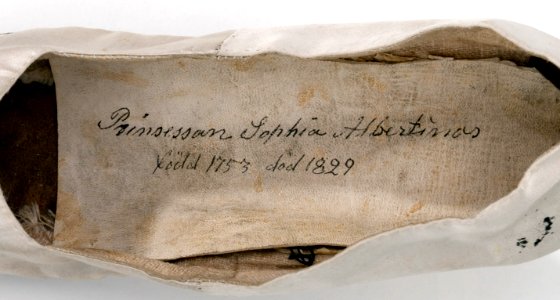 Prinsessan Sophia Albertinas
född 1753 död 1829